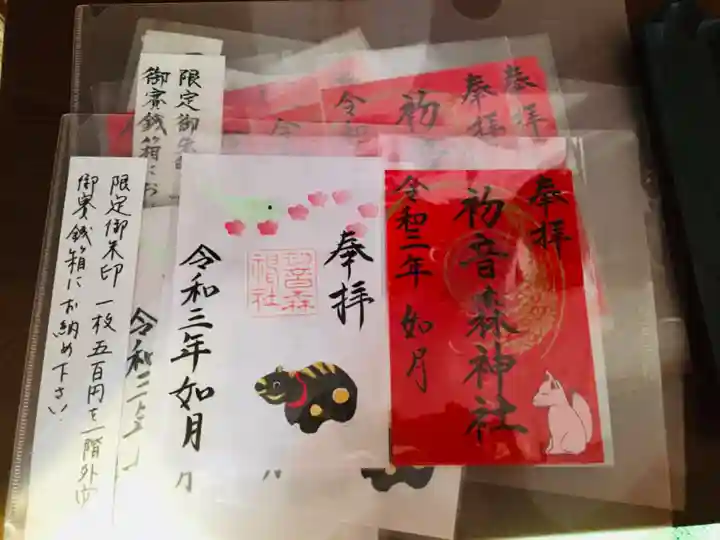 限定御朱印 一枚五百円を一階外の
御賽銭箱にお納め下さい
奉拝
初音森
神社
令和三年如月
奉拝
初音森神社
令和二年 如月
限定御朱
御賽銭箱にお
奉拝
奉拝
初
令和
令
令和三